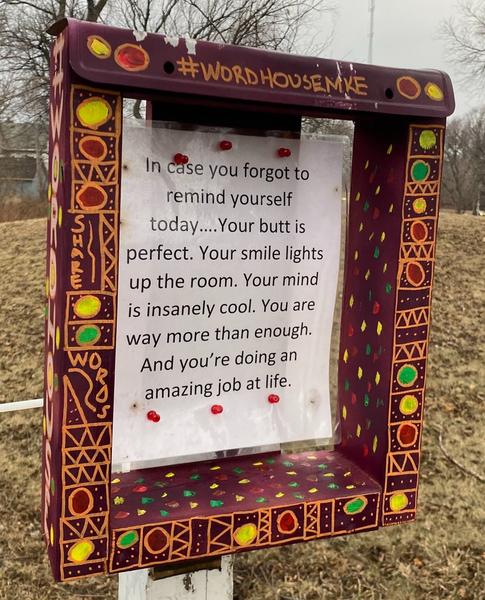 #WORDHOUSEMKE
In case you forgot to
remind yourself
today....Your butt is
perfect. Your smile lights
up the room. Your mind
is insanely cool. You are
way more than enough.
And you're doing an
amazing job at life.
SHARE
WORDS